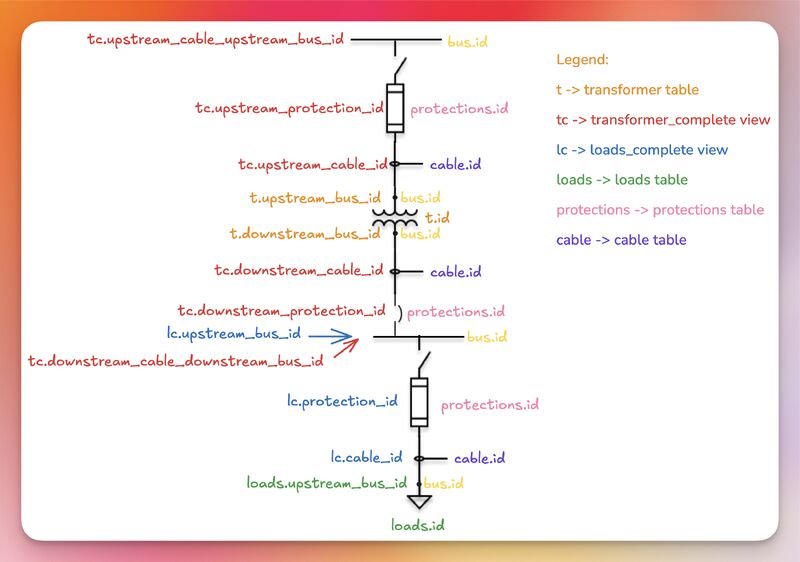 tc.upstream_cable_upstream_bus_id
bus.id
Legend:
t -> transformer table
tc -> transformer_complete view
lc -> loads_complete view
loads -> loads table
protections -> protections table
cable -> cable table
tc.upstream_protection_id
protections.id
tc.upstream_cable_id
cable.id
t.upstream_bus_id
bus.id
t.id
t.downstream_bus_id
bus.id
tc.downstream_cable_id
cable.id
tc.downstream_protection_id
protections.id
lc.upstream_bus_id
bus.id
tc.downstream_cable_downstream_bus_id
lc.protection_id
protections.id
lc.cable_id
cable.id
loads.upstream_bus_id
bus.id
loads.id